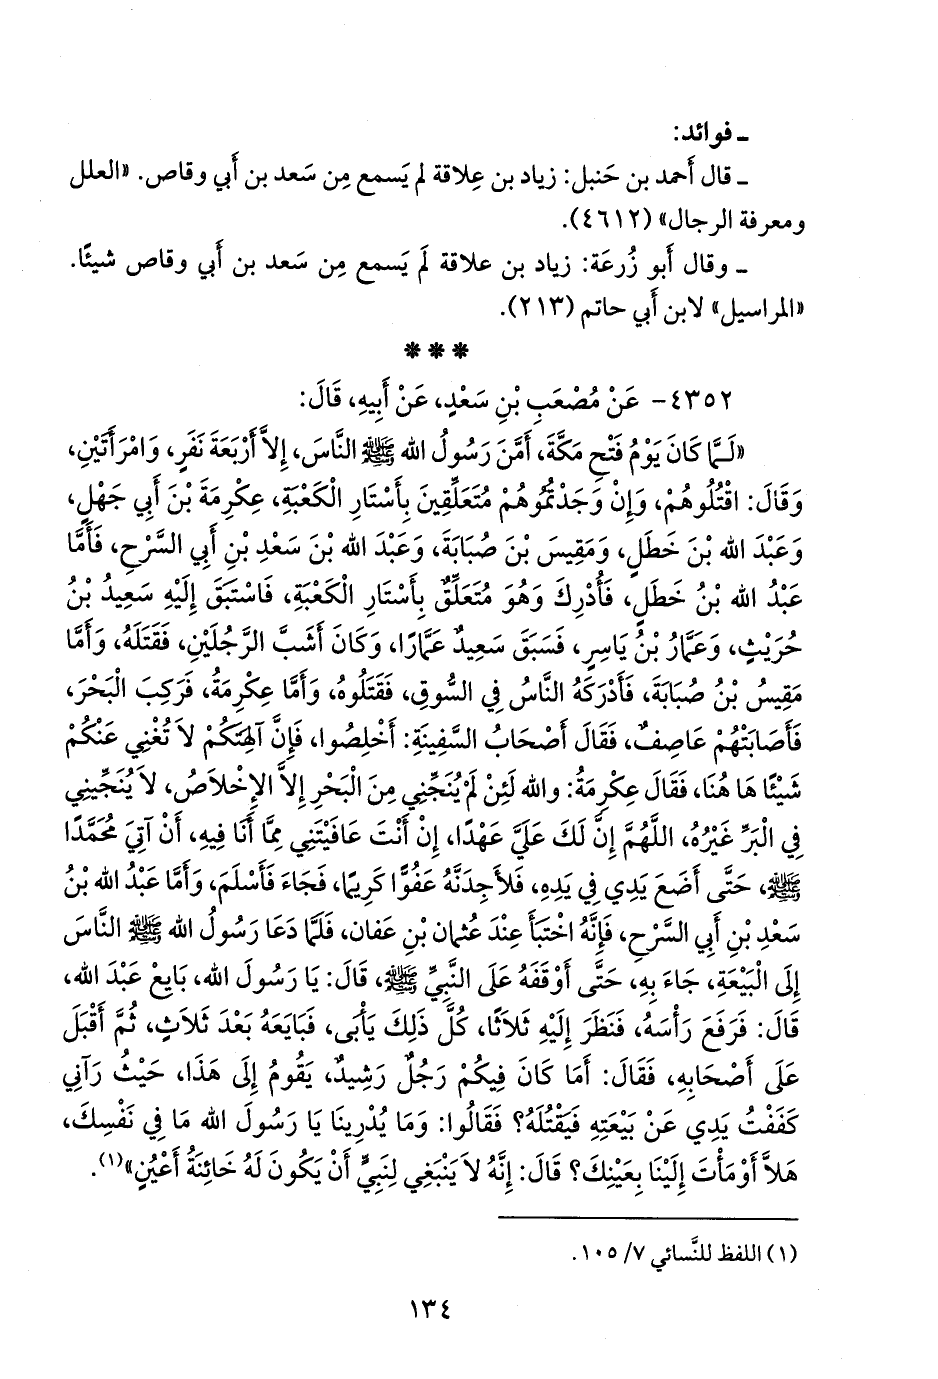 ـ فوائد:
ـ قال أَحمد بن حَنبل: زياد بن عِلاقة لم يَسمع مِن سَعد بن أَبي وقاص. «العلل
ومعرفة الرجال» (٤٦١٢).
ـ وقال أَبو زُرعَة: زياد بن علاقة لَم يَسمع مِن سَعد بن أَبي وقاص شيئًا.
«المراسيل» لابن أَبي حاتم (٢١٣).
* * *
٤٣٥٢- عَنْ مُصْعَبِ بْنِ سَعْدٍ، عَنْ أَبِيهِ، قَالَ:
«لَـمَّا كَانَ يَوْمُ فَتْحِ مَكَّةَ، أَمَّنَ رَسُولُ الله ﷺ النَّاسَ، إِلاَّ أَرْبَعَةَ نَفَرٍ، وَامْرَأَتَيْنِ،
وَقَالَ: اقْتُلُوهُمْ، وَإِنْ وَجَدْتُمُوهُمْ مُتَعَلِّقِينَ بِأَسْتَارِ الْكَعْبَةِ، عِكْرِمَةَ بْنَ أَبِي جَهْلٍ،
وَعَبْدَ الله بْنَ خَطَلٍ، وَمَقِيسَ بْنَ صُبَابَةَ، وَعَبْدَ الله بْنَ سَعْدِ بْنِ أَبِي السَّرْحِ، فَأَمَّا
عَبْدُ الله بْنُ خَطَلٍ، فَأُدْرِكَ وَهُوَ مُتَعَلِّقٌ بِأَسْتَارِ الْكَعْبَةِ، فَاسْتَبَقَ إِلَيْهِ سَعِيدُ بْنُ
حُرَيْثٍ، وَعَمَّارُ بْنُ يَاسِرٍ، فَسَبَقَ سَعِيدٌ عَمَّارًا، وَكَانَ أَشَبَّ الرَّجُلَيْنِ، فَقَتَلَهُ، وَأَمَّا
مَقِيسُ بْنُ صُبَابَةَ، فَأَدْرَكَهُ النَّاسُ فِي السُّوقِ، فَقَتَلُوهُ، وَأَمَّا عِكْرِمَةُ، فَرَكِبَ الْبَحْرَ،
فَأَصَابَتْهُمْ عَاصِفٌ، فَقَالَ أَصْحَابُ السَّفِينَةِ: أَخْلِصُوا، فَإِنَّ آلِهَتَكُمْ لاَ تُغْنِي عَنْكُمْ
شَيْئًا هَا هُنَا، فَقَالَ عِكْرِمَةُ: والله لَئِنْ لَمْ يُنَجِّنِي مِنَ الْبَحْرِ إِلاَّ الإِخْلاَصُ، لاَ يُنَجِّينِي
فِي الْبَرِّ غَيْرُهُ، اللَّهُمَّ إِنَّ لَكَ عَلَيَّ عَهْدًا، إِنْ أَنْتَ عَافَيْتَنِي مِمَّا أَنَا فِيهِ، أَنْ آتِيَ مُحَمَّدًا
ﷺ، حَتَّى أَضَعَ يَدِي فِي يَدِهِ، فَلأَجِدَنَّهُ عَفُوًّا كَرِيمًا، فَجَاءَ فَأَسْلَمَ، وَأَمَّا عَبْدُ الله بْنُ
سَعْدِ بْنِ أَبِي السَّرْحِ، فَإِنَّهُ اخْتَبَأَ عِنْدَ عُثمان بْنِ عَفان، فَلَمَّا دَعَا رَسُولُ الله ﷺ النَّاسَ
إِلَى الْبَيْعَةِ، جَاءَ بِهِ، حَتَّى أَوْقَفَهُ عَلَى النَّبِيِّ ﷺ، قَالَ: يَا رَسُولَ الله، بَايِعْ عَبْدَ الله،
قَالَ: فَرَفَعَ رَأْسَهُ، فَنَظَرَ إِلَيْهِ ثَلاَثًا، كُلَّ ذَلِكَ يَأْبَى، فَبَايَعَهُ بَعْدَ ثَلاَثٍ، ثُمَّ أَقْبَلَ
عَلَى أَصْحَابِهِ، فَقَالَ: أَمَا كَانَ فِيكُمْ رَجُلٌ رَشِيدٌ، يَقُومُ إِلَى هَذَا، حَيْثُ رَآنِي
كَفَفْتُ يَدِي عَنْ بَيْعَتِهِ فَيَقْتُلَهُ؟ فَقَالُوا: وَمَا يُدْرِينَا يَا رَسُولَ الله مَا فِي نَفْسِكَ،
هَلاَّ أَوْمَأْتَ إِلَيْنَا بِعَيْنِكَ؟ قَالَ: إِنَّهُ لاَ يَنْبَغِي لِنَبِيٍّ أَنْ يَكُونَ لَهُ خَائِنَةُ أَعْيُنٍ»(١).
(١) اللفظ للنَّسائي ٧/ ١٠٥.
١٣٤